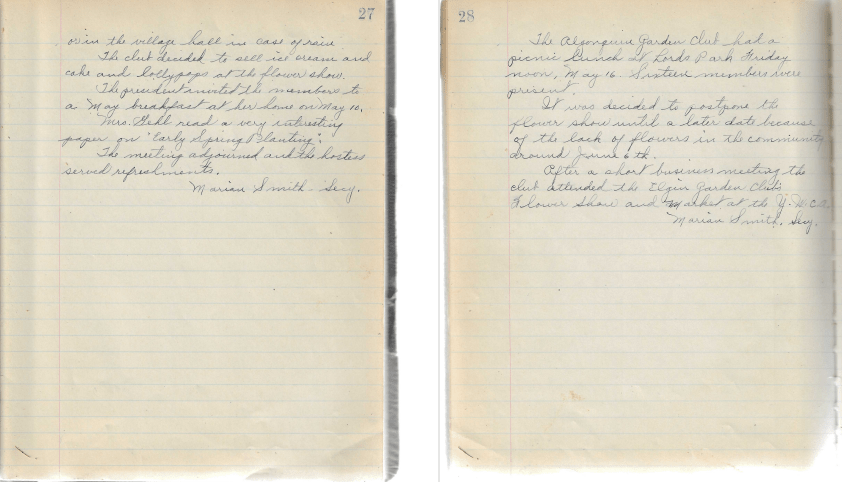 27
or in the village hall in case of rain
The club decided to sell ice cream and
cake and lollypops at the flower show.
The president invited the members to
a May breakfast at her home on May 10.
Mrs. Gehl read a very interesting
paper on "Early Spring Planting".
The meeting adjourned and the hostess
served refreshments.
Marian Smith - Secy.
28
The Algonquin Garden Club had a
picnic lunch at Lords Park Friday
noon, May 16. Sixteen members were
present.
It was decided to postpone the
flower show until a later date because
of the lack of flowers in the community
around June 6th.
After a short business meeting the
club attended the Elgin Garden Club
Flower Show and Market at the Y.W.C.A.
Marian Smith, Secy.